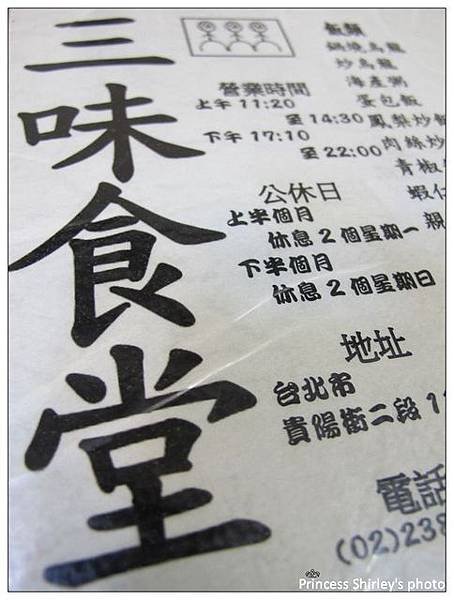 三味食堂
營業時間
上午 11:20
至 14:30
下午 17:10
至 22:00
公休日
上半個月
休息 2 個星期一
下半個月
休息 2 個星期日
地址
台北市
貴陽街二段 1
電話
(02)238
飯類
鍋燒烏龍
炒烏龍
海產粥
蛋包飯
鳳梨炒飯
肉絲炒
青椒
蝦仁
親
Princess Shirley's photo